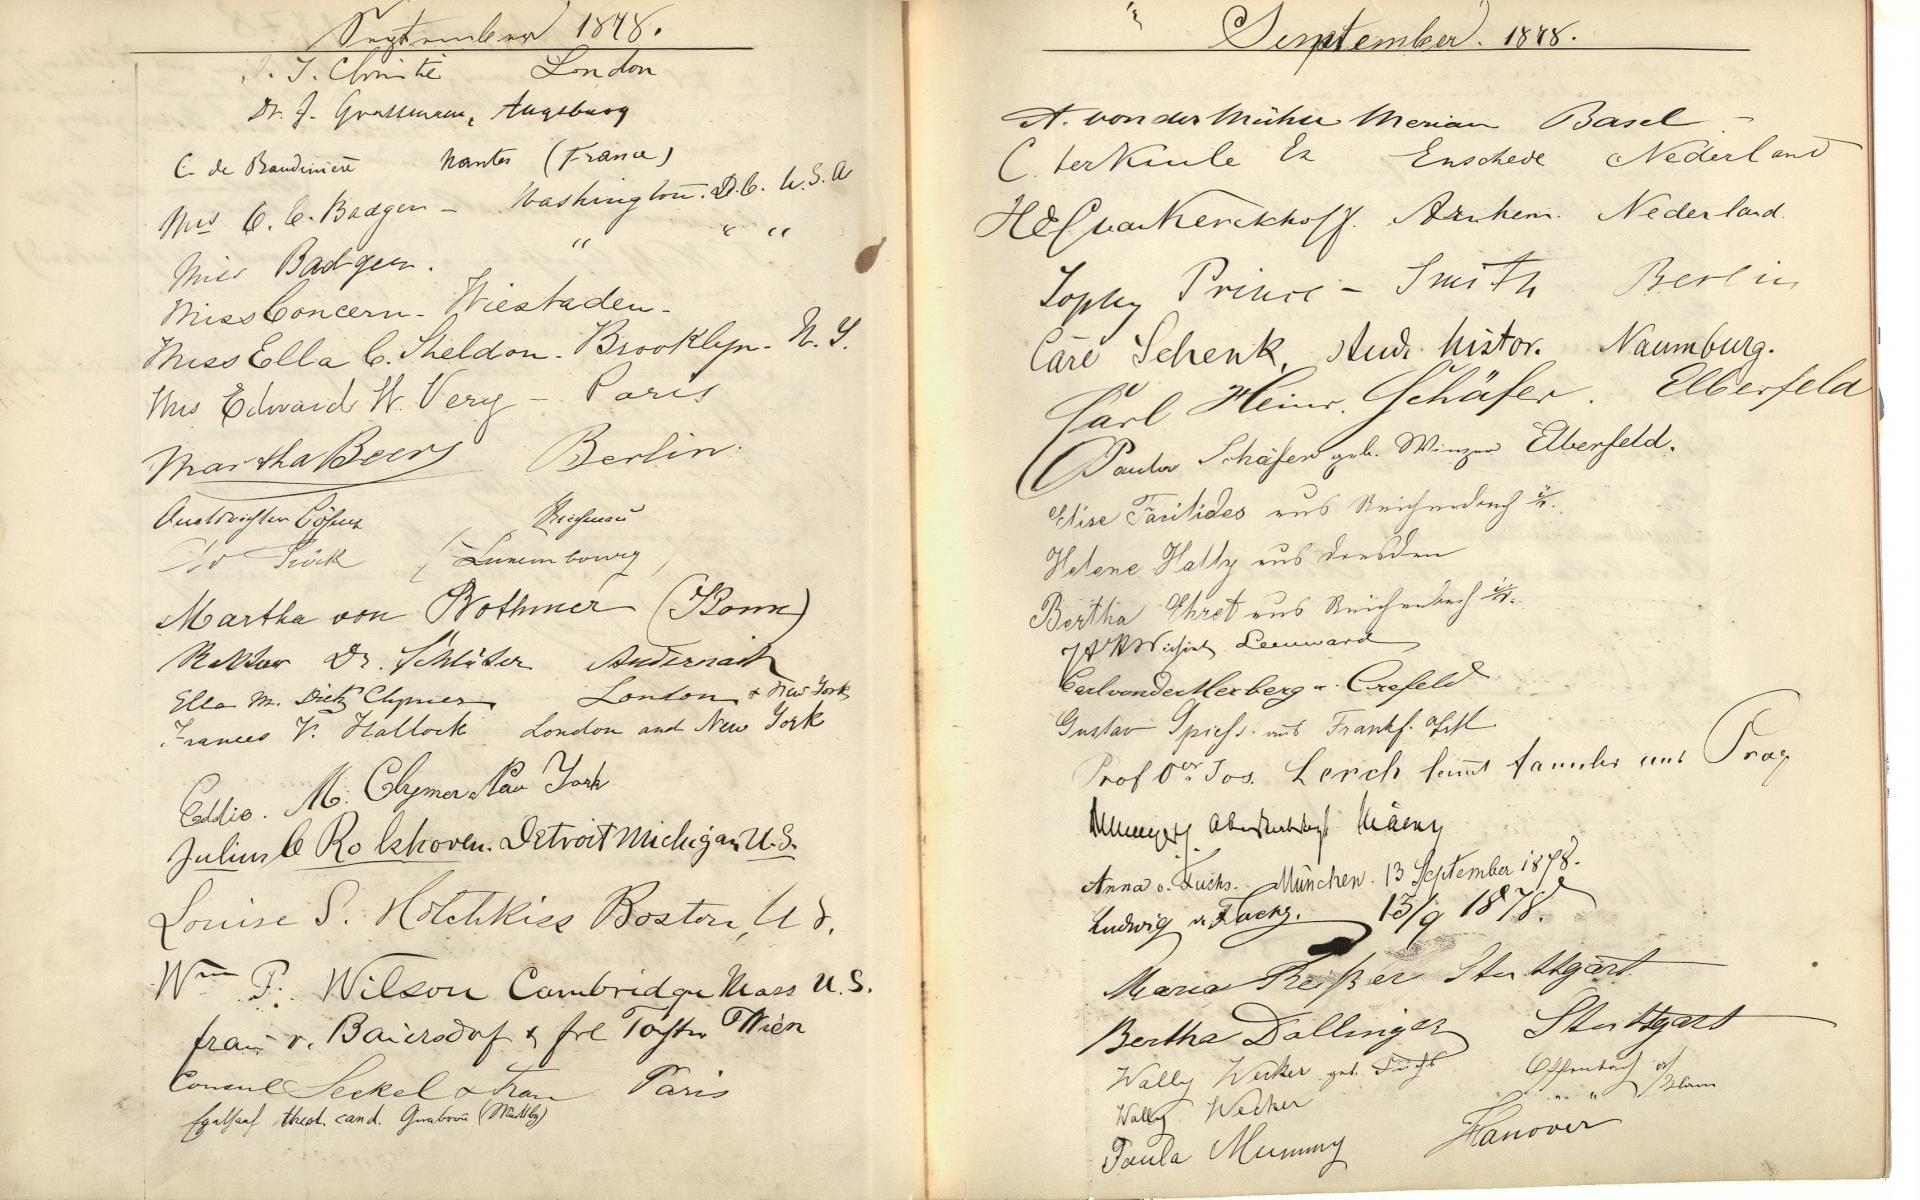 September 1878.
J. Christie London
Dr. J. Grassmann, Augsburg
C. de Baudinière Nantes (France)
Mrs C. C. Badger - Washington. D.C. U.S.A
Miss Badger. " " "
Miss Concern - Wiesbaden -
Miss Ella C. Sheldon - Brooklyn - N. Y.
Mrs Edward W. Very - Paris
Martha Beers Berlin.
(Luxembourg)
Martha von Bothmer (Bonn)
Rektor Dr. Schlüter Andernach
Ella M. Dietz Clymer London & New York
Frances V. Hallock London and New York
Eddie. M. Clymer New York
Julius C Rolshoven. Detroit Michigan U.S.
Louise S. Hotchkiss Boston, U S.
Wm P. Wilson Cambridge Mass U.S.
frau v. Baiersdorf & frl Tochter Wien
Consul Seckel & Frau Paris
theol. cand.
September. 1878.
A. von der Mühll Merian Basel -
C. ter Kuile Ez Enschede Nederland
van Kerckhoff. Arnhem. Nederland.
Sophy Prince - Smith Berlin
Schenk, stud. histor. Naumburg.
Carl Heinr. Schäfer. Elberfeld
Paula Schäfer geb. Winzer Elberfeld.
Elise Facilides aus Reichenbach i/V.
Helene aus Dresden
Bertha Ehret aus Reichenbach i/V.
Leeuward
Carl von der Herberg - Crefeld
Gustav Spiess. aus Frankf. a/M
Prof Dor Jos. Lerch sammt Familie aus Prag
Anna v. Fuchs. München. 13 September 1878.
Ludwig v. 13/9 1878.
Maria Stuttgart
Bertha Dallinger Stuttgart
Wally Wecker geb. Fuchs Offenbach a/Main
Wally Wecker " "
Paula Mummy Hanover